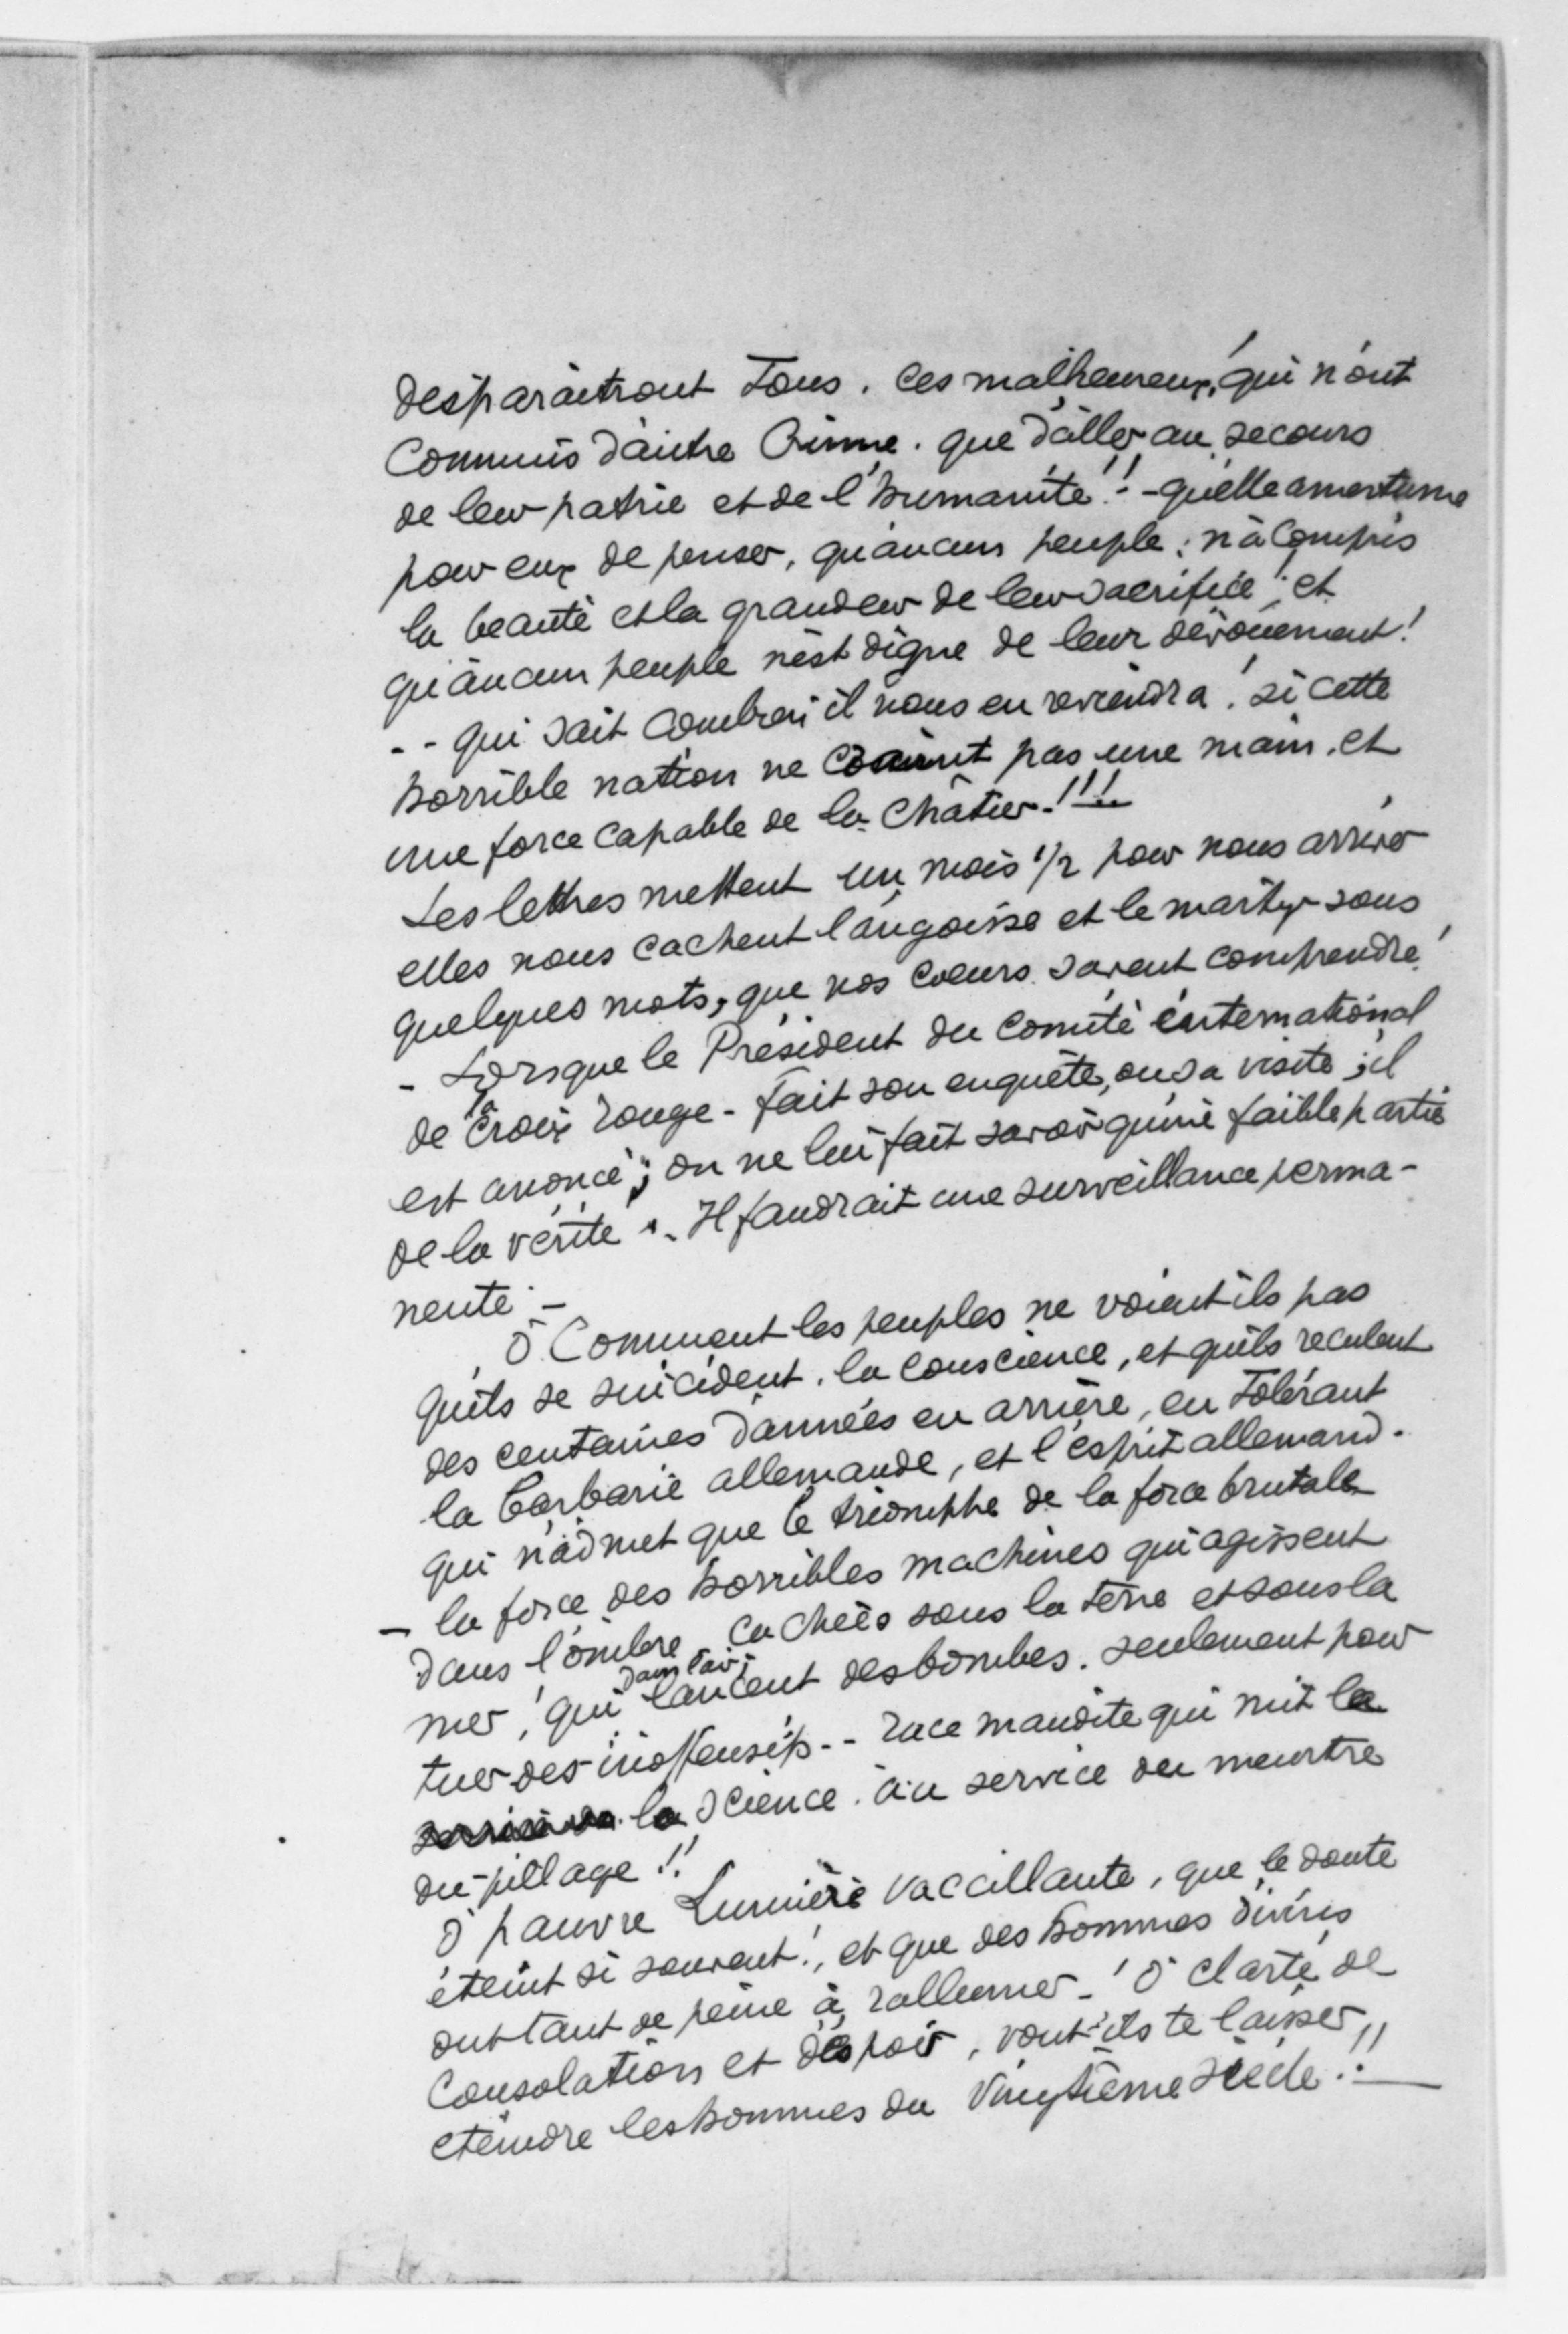 desparaitront Tous. Ces malheureux! qui n'ont
Commis d'autre Crime. que d'aller au secours
de leur patrie et de l'humanité!! - qu'elle amertume
pour eux de penser, qu'aucun peuple: n'a compris
la beauté et la grandeur de leur sacrifice; et
qu'aucun peuple n'est digne de leur dévouement!
-- qui sait combien il nous en reviendra! si cette
horrible nation ne craint pas une main. et
une force capable de la châtier!!!
Les lettres mettent un mois 1/2 pour nous arriver
elles nous cachent l'angoisse et le martyr sous
quelques mots, que nos coeurs savent comprendre!
- Lorsque le Président du Comité international
de la Croix rouge - fait son enquête, ou sa visite; il
est anoncé; on ne lui fait savoir qu'une faible partie
de la vérité.. Il faudrait une surveillance perma-
nente. -
Ô Comment les peuples ne voient ils pas
qu'ils se suicident. la conscience, et qu'ils reculent
des centaines d'années en arrière, en Tolérant
la barbarie allemande, et l'esprit allemand.
qui n'admet que le triomphe de la force brutale
- la force des horribles machines qui agissent
dans l'ombre cachées sous la terre et sous la
mer, qui dans l'air, lancent des bombes. seulement pour
tuer des inoffensifs -- race maudite qui mit la
la science. au service du meurtre
du pillage!!
Ô pauvre Lumière vaccillante, que le doute
éteint si souvent!, et que des hommes divins
ont tant de peine à rallumer -! Ô clarté de
Consolation et d'espoir, vont-ils te laisser,
eteindre les hommes du Vingtième siècle!!